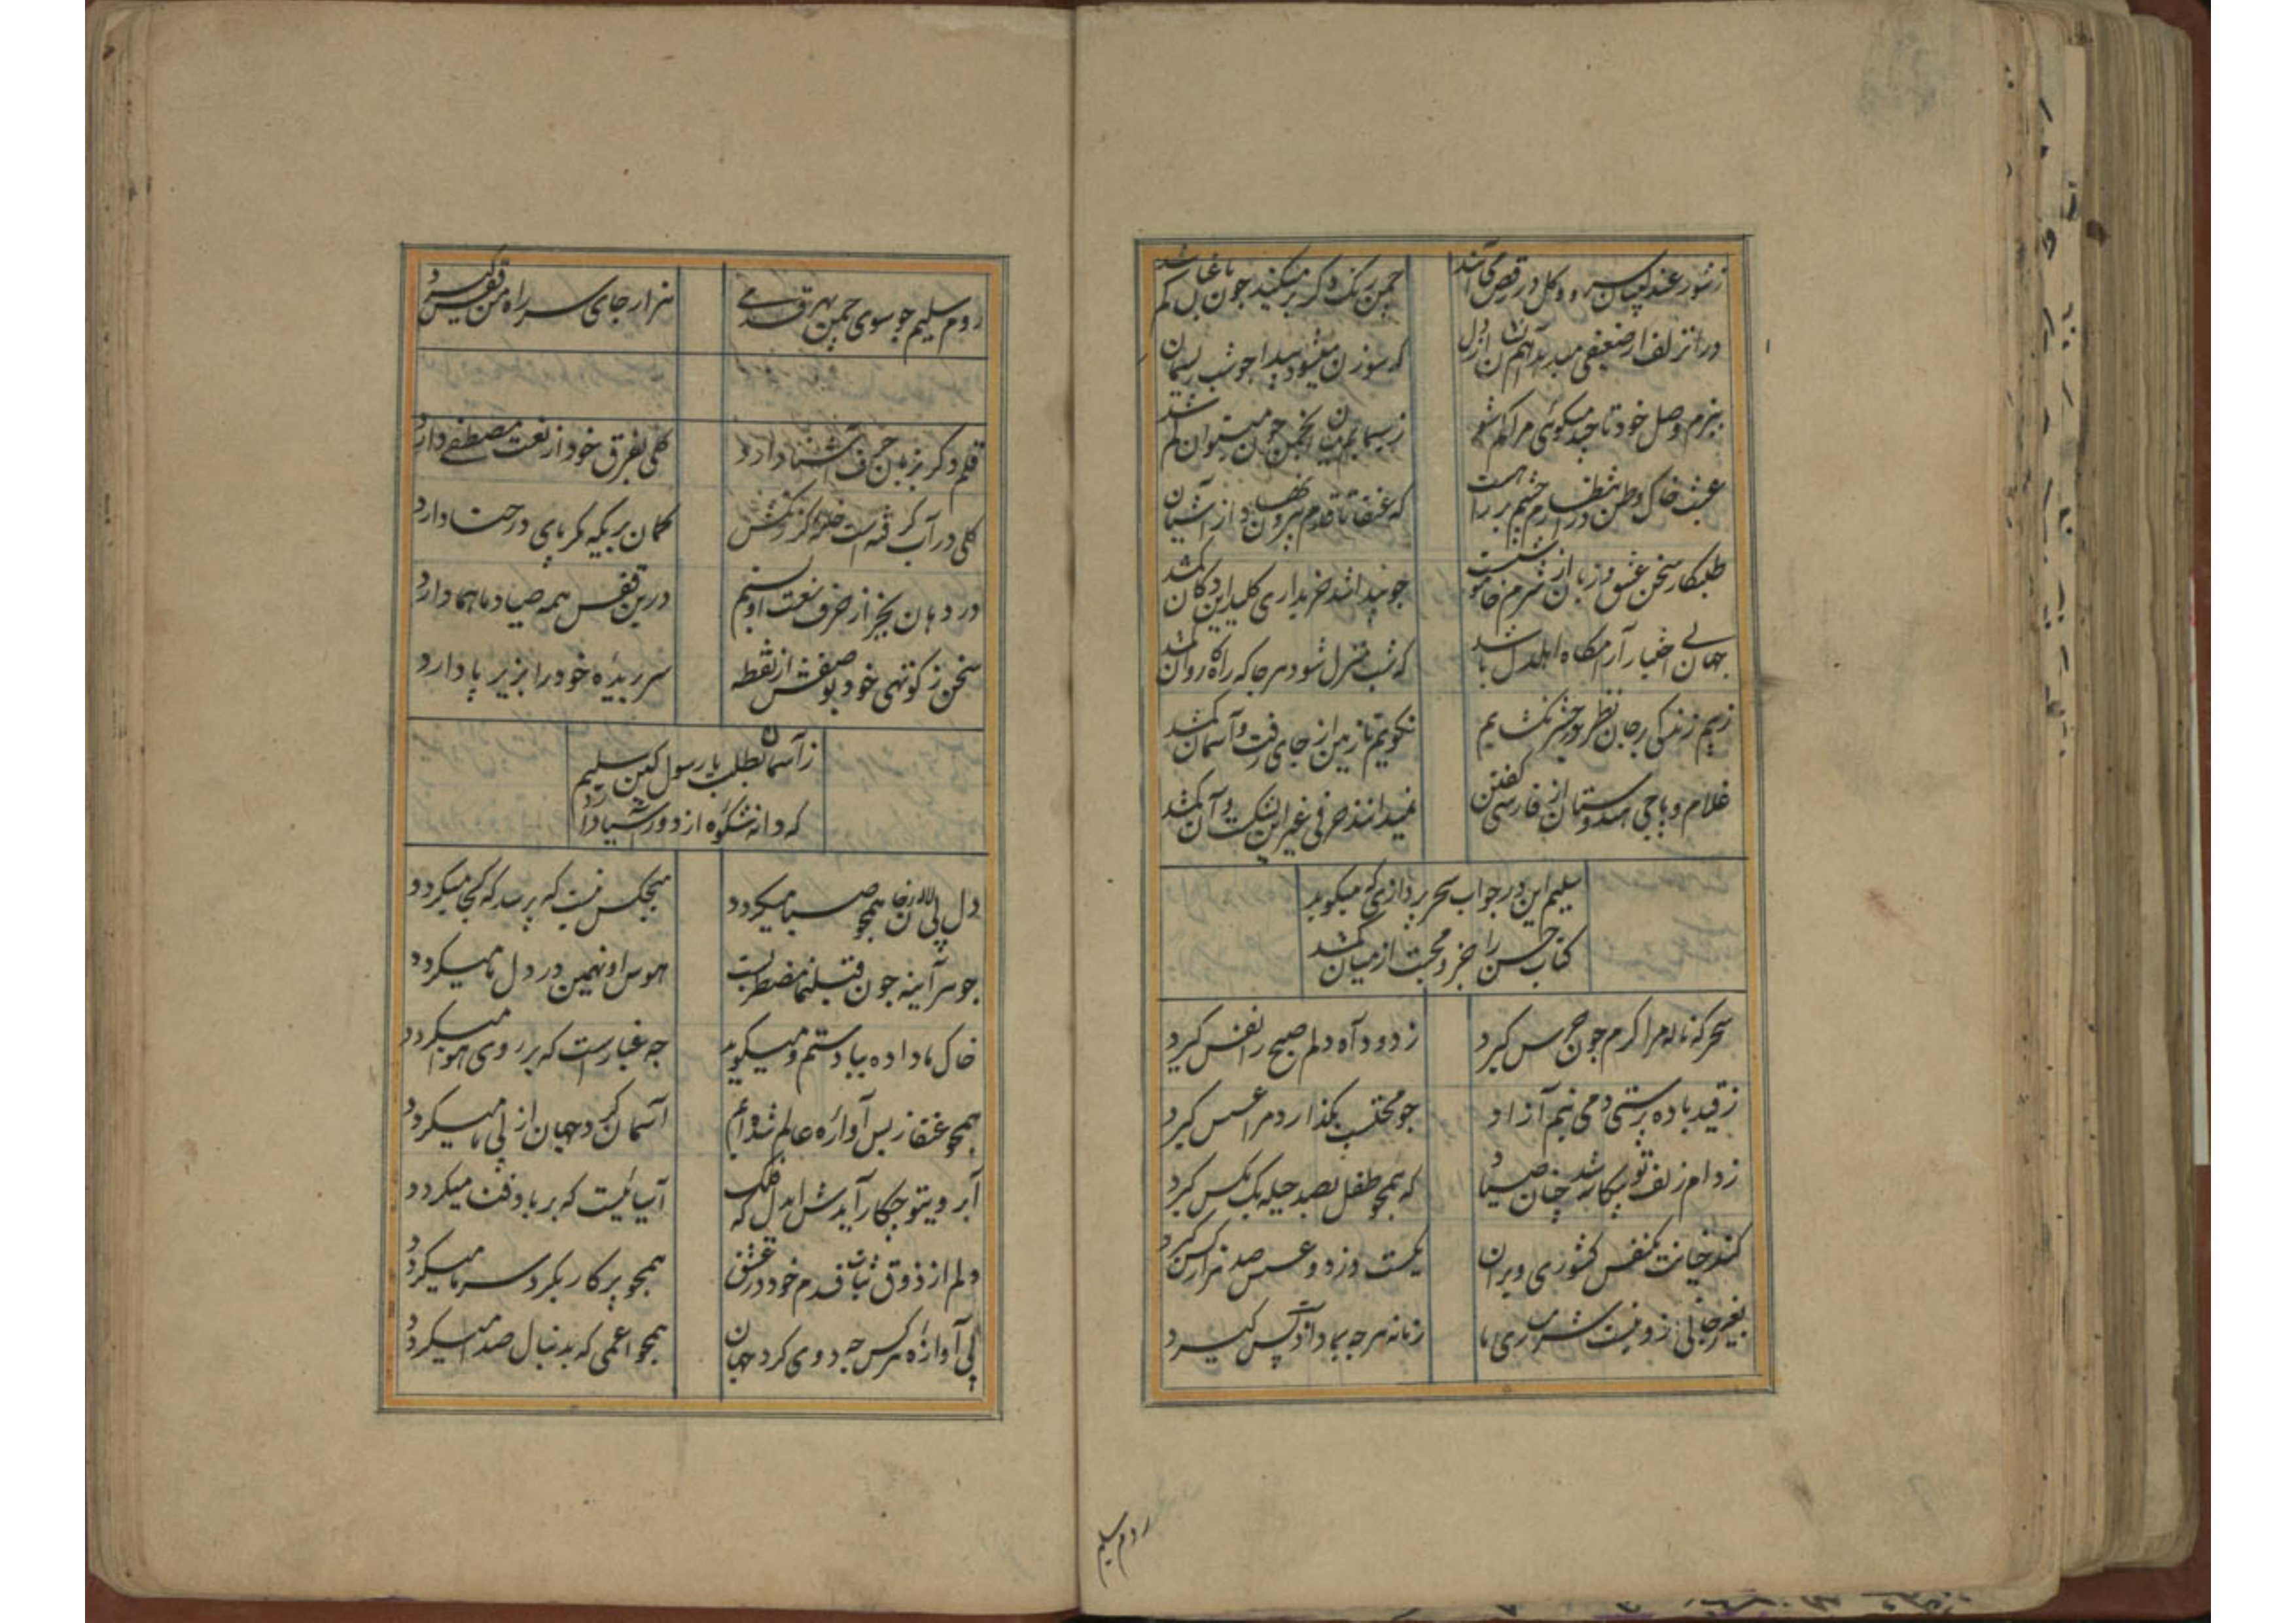 ز شور عندلیبان سرو و گل در رقص می‌آیند
چمن رنگ دکر بر میکنید چون باغبان کم شد
در انزلف از ضعیفی
که سوزن میشود پیدا چو شب ریسمان
ببزم وصل خود تا چند میگوئی مرا کم شو
ز سیمابم میان انجمن چون میتوان کم شد
عبث خاک وطن در انتظارم چشم بر راهست
که عنقا تا قدم بیرون نهاد از آشیان
طلبکار سخن عنقا و زبان از شرم خاموشست
چو پیدا شد خریداری کلید این دکان کم شد
جهان بی اختیار آرامگاه اهل دل باشد
که شب منزل شود هر جا که راه کاروان کم شد
ز بیم زندگی بر جان نظر در حشر نگشایم
نگویم تا زمین از جای رفت و آسمان کم شد
غلام و پاجی هندوستان از فارسی گفتن
نمیدانند حرفی غیر این بشکست و آن کم شد
سلیم این در جواب سحر پردازی که میگوید
کتاب حسن را جزو محبت از میان کم شد
سحر که ناله مرا کرم چون جرس کیرد
ز دود آه دلم صبح را نفس کیرد
ز قید باده پرستی دمی نیم آزاد
چو محتسب بگذارد مرا عسس کیرد
ز دام زلف تو بیکار شد چنان صیاد
که همچو طفل بصد حیله یک مگس کیرد
کند خیانت یکنفس کشوری ویران
یکیست دزد و عسس صد هزار کس کیرد
بغیر خجالت ازو نیست شرمساری ما
زمانه هر چه بما داد باز پس کیرد
روم سلیم
روم سلیم چو سوی چمن بهر قدمی
هزار جای سر راه من قفس کیرد
قلم دکر بزبان حرف آشنا دارد
گلی بفرق خود از نعت مصطفی دارد
گلی در آب گرفته است خامه کز نقش
گمان بری که مگر پای در حنا دارد
در دهان بجز از حرف نعت او بستم
درین قفس همه صیاد ما هما دارد
سخن ز کوتهی خود بوصفش از نقطه
سر بریده خود را بزیر پا دارد
ز آسمان بطلب یا رسول کین سلیم
که دانه شکوه از دور آسیا دارد
دل پی لاله رخان همچو صبا میگردد
هیچکس نیست که پرسد که کجا میگردد
جوهر آینه چون قبله‌نما مضطربست
هوس او نه همین در دل ما میگردد
خاک ما داده بباد ستم و میگوید
چه غبارست که بر روی هوا میگردد
همچو عنقا ز بس آواره عالم شده‌ایم
آسمان گرد جهان از پی ما میگردد
آبرو بیتو چکار آید
آسیائیست که بر باد فنا میگردد
دلم از ذوق ثبات قدم خود در عشق
همچو پرکار بگرد سر ما میگردد
پی آوازه هر کس چه دوی گرد جهان
همچو اعمی که بدنبال صدا میگردد